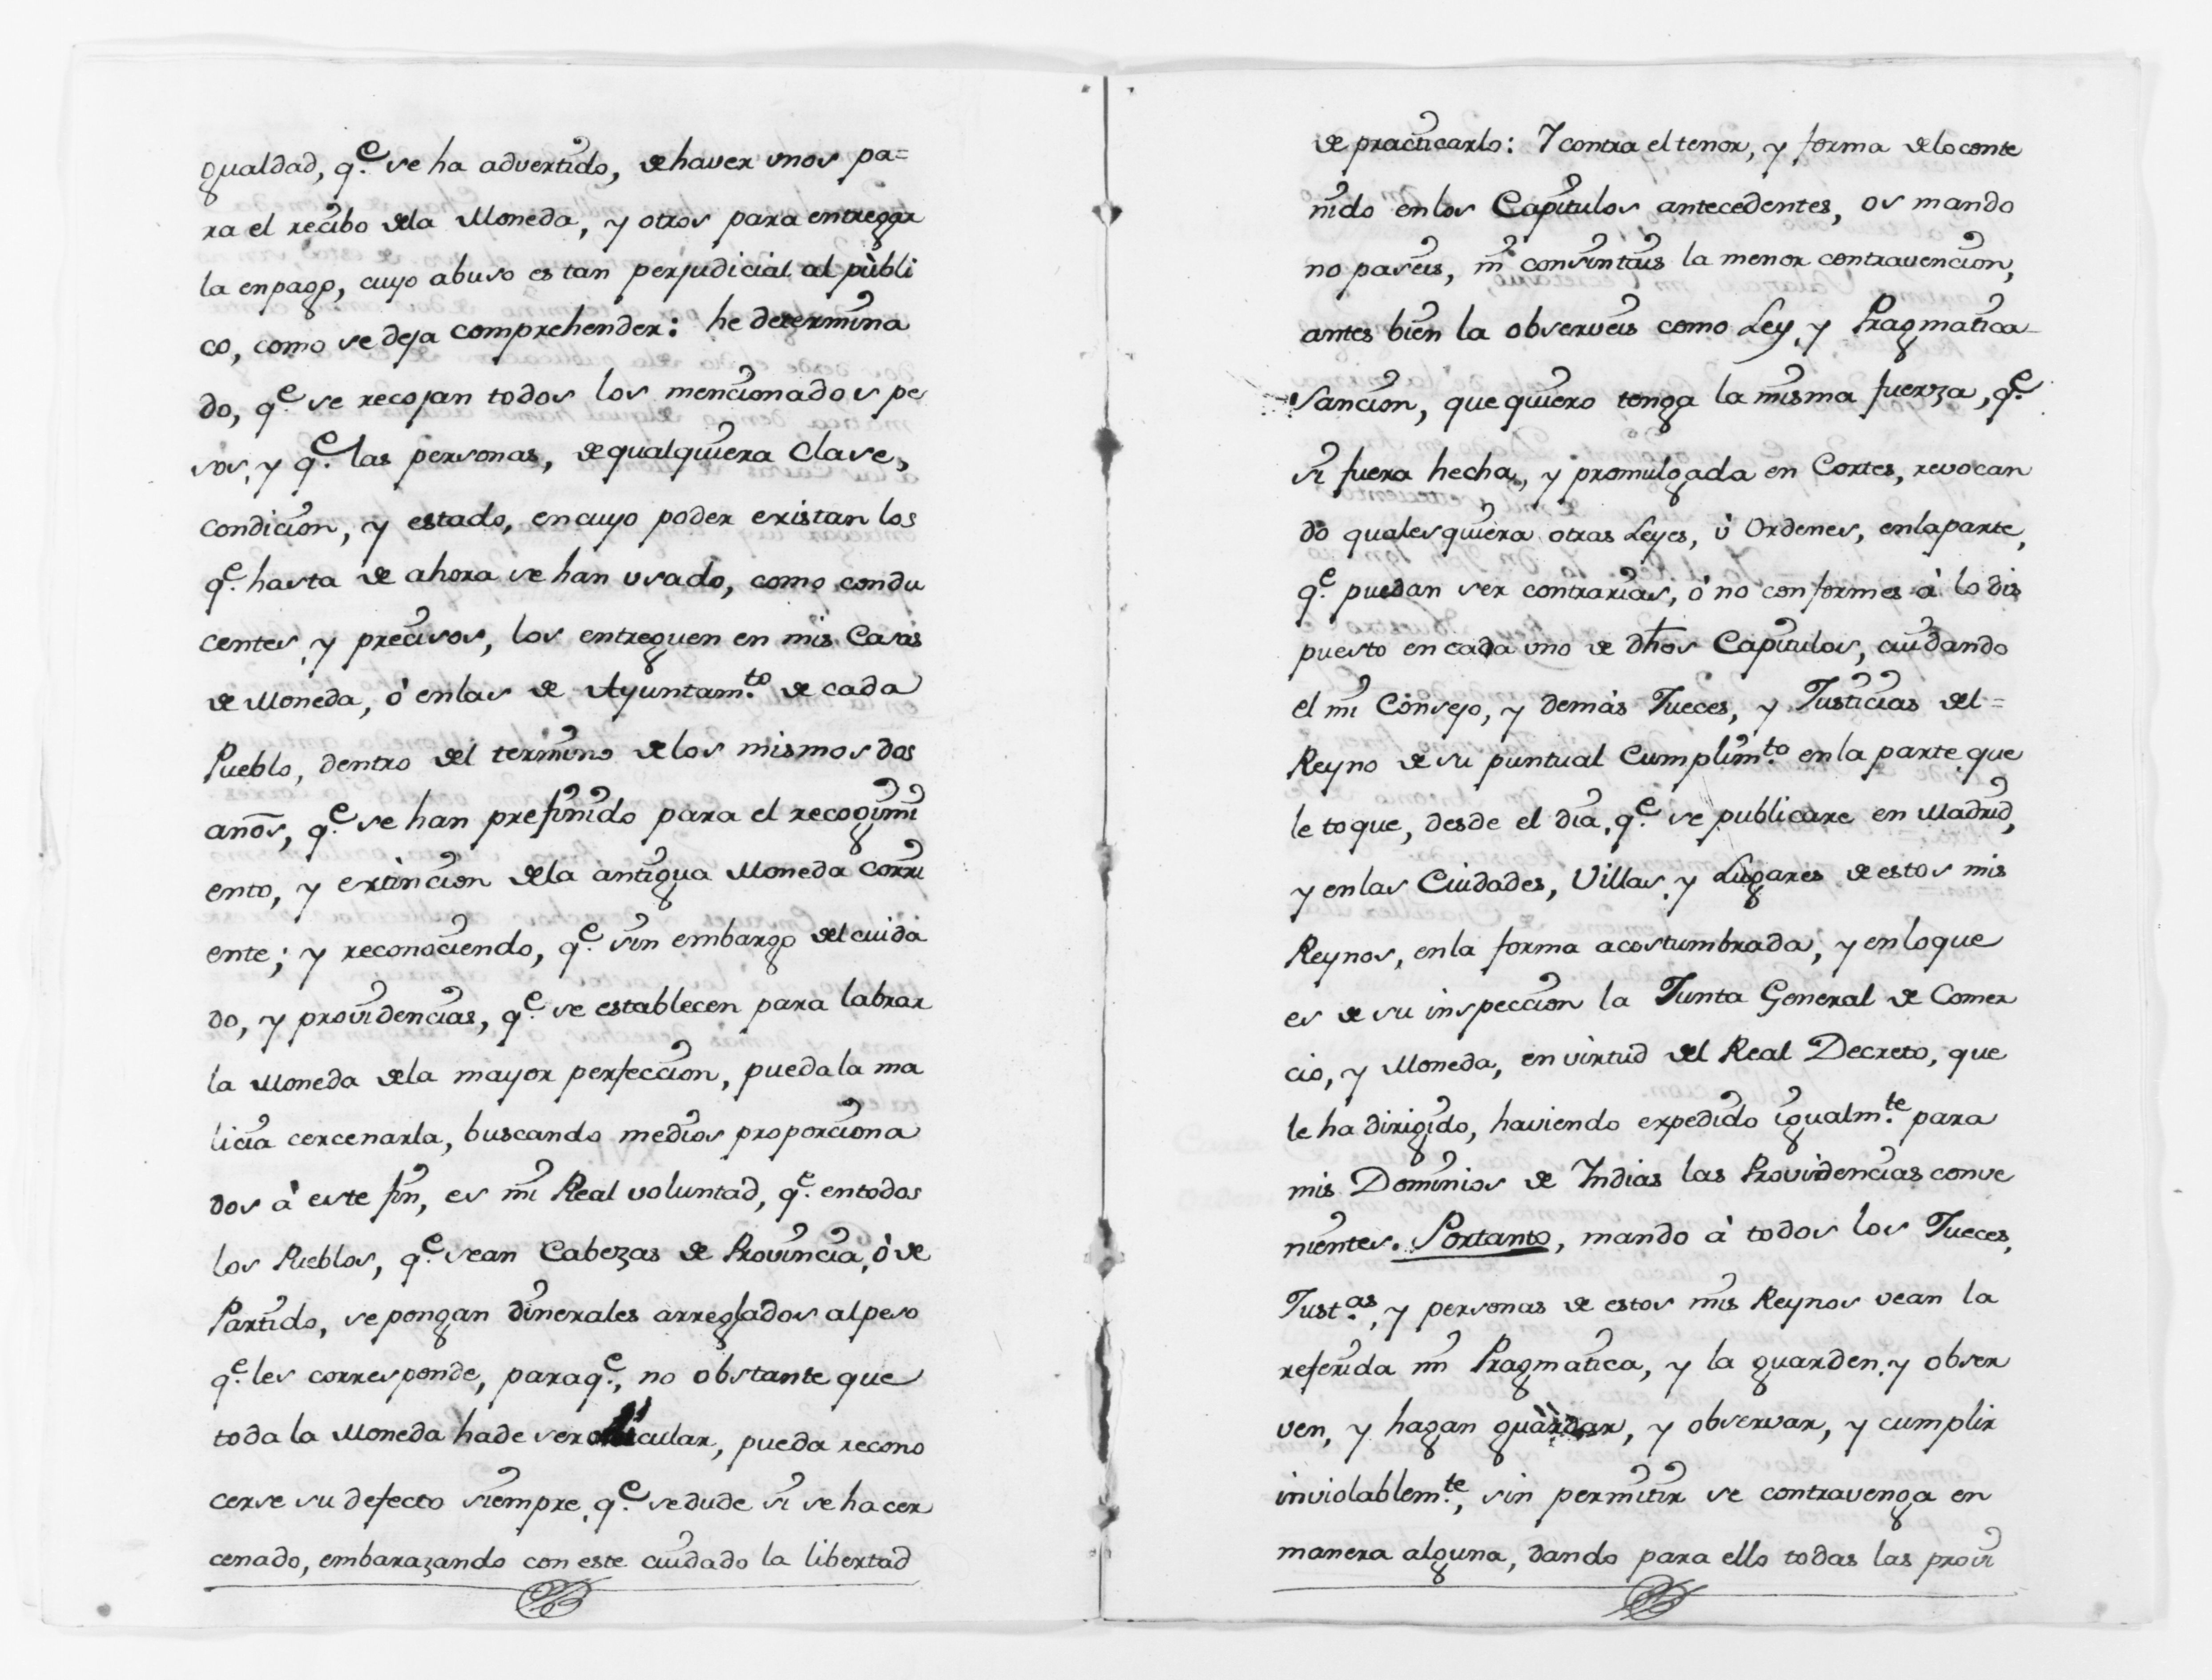 gualdad, q.e se ha advertido, de haver unos pa=
ra el recibo dela Moneda, y otros para entregar
la enpago, cuyo abuso es tan perjudicial al pùbli
co, como se deja comprehender: he determina
do, q.e se recojan todos los mencionados pe
sos, y q.e las personas, de qualquiera Clase,
condicion, y estado, encuyo poder existan los
q.e hasta de ahora se han usado, como condu
centes, y precisos, los entreguen en mis Casas
de Moneda, ò enlas de Ayuntam.to de cada
Pueblo, dentro del termino delos mismos dos
años, q.e se han prefinido para el recogimi
ento, y extincion dela antigua Moneda corri
ente; y reconociendo, q.e sin embargo del cuida
do, y providencias, q.e se establecen para labrar
la Moneda dela mayor perfeccion, pueda la ma
licia cercenarla, buscando medios proporciona
dos à este fin, es mi Real voluntad, q.e entodos
los Pueblos, q.e sean Cabezas de Provincia, ò de
Partido, se pongan dinerales arreglados al peso
q.e les corresponde, paraq.e, no obstante que
toda la Moneda hade ser circular, pueda recono
cerse su defecto siempre, q.e se dude si se ha cer
cenado, embarazando con este cuidado la libertad
de practicarlo: Y contra el tenor, y forma delo conte
nido enlos Capitulos antecedentes, os mando
no paseis, ni consintais la menor contravencion,
antes bien la observeis como Ley, y Pragmatica
Sancion, que quiero tenga la misma fuerza, q.e
si fuera hecha, y promulgada en Cortes, revocan
do qualesquiera otras Leyes, ù Ordenes, enlaparte,
q.e puedan ser contrarias, ò no conformes à lo dis
puesto en cada uno de dhos Capitulos, cuidando
el mi Consejo, y demàs Jueces, y Justicias del=
Reyno de su puntual Cumplim.to en la parte que
le toque, desde el dia, q.e se publicare en Madrid,
y enlas Ciudades, Villas, y Lugares de estos mis
Reynos, enla forma acostumbrada, y enloque
es de su inspeccion la Junta General de Comer
cio, y Moneda, en virtud del Real Decreto, que
le ha dirigido, haviendo expedido igualm.te para
mis Dominios de Indias las Providencias conve
nientes. Portanto, mando à todos los Jueces,
Just.as, y personas de estos mis Reynos vean la
referida mi Pragmatica, y la guarden, y obser
ven, y hagan guardar, y observar, y cumplir
inviolablem.te, sin permitir se contravenga en
manera alguna, dando para ello todas las provi